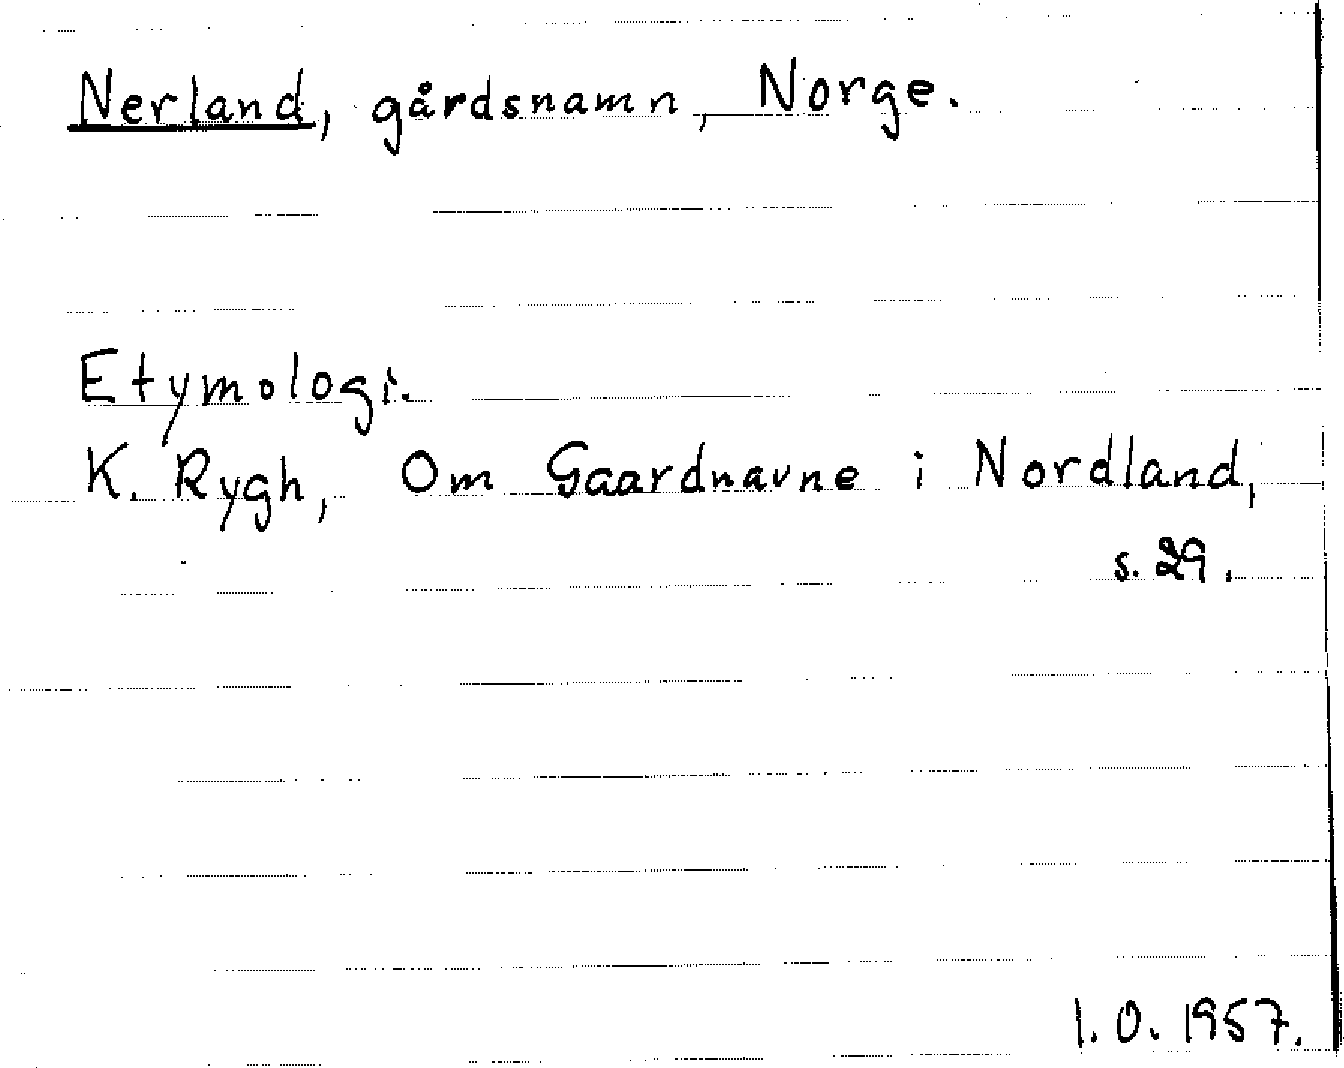 Nerland, gårdsnamn, Norge.
Etymologi.
K. Rygh, Om Gaardnavne i Nordland,
s. 29.
I.O. 1957.